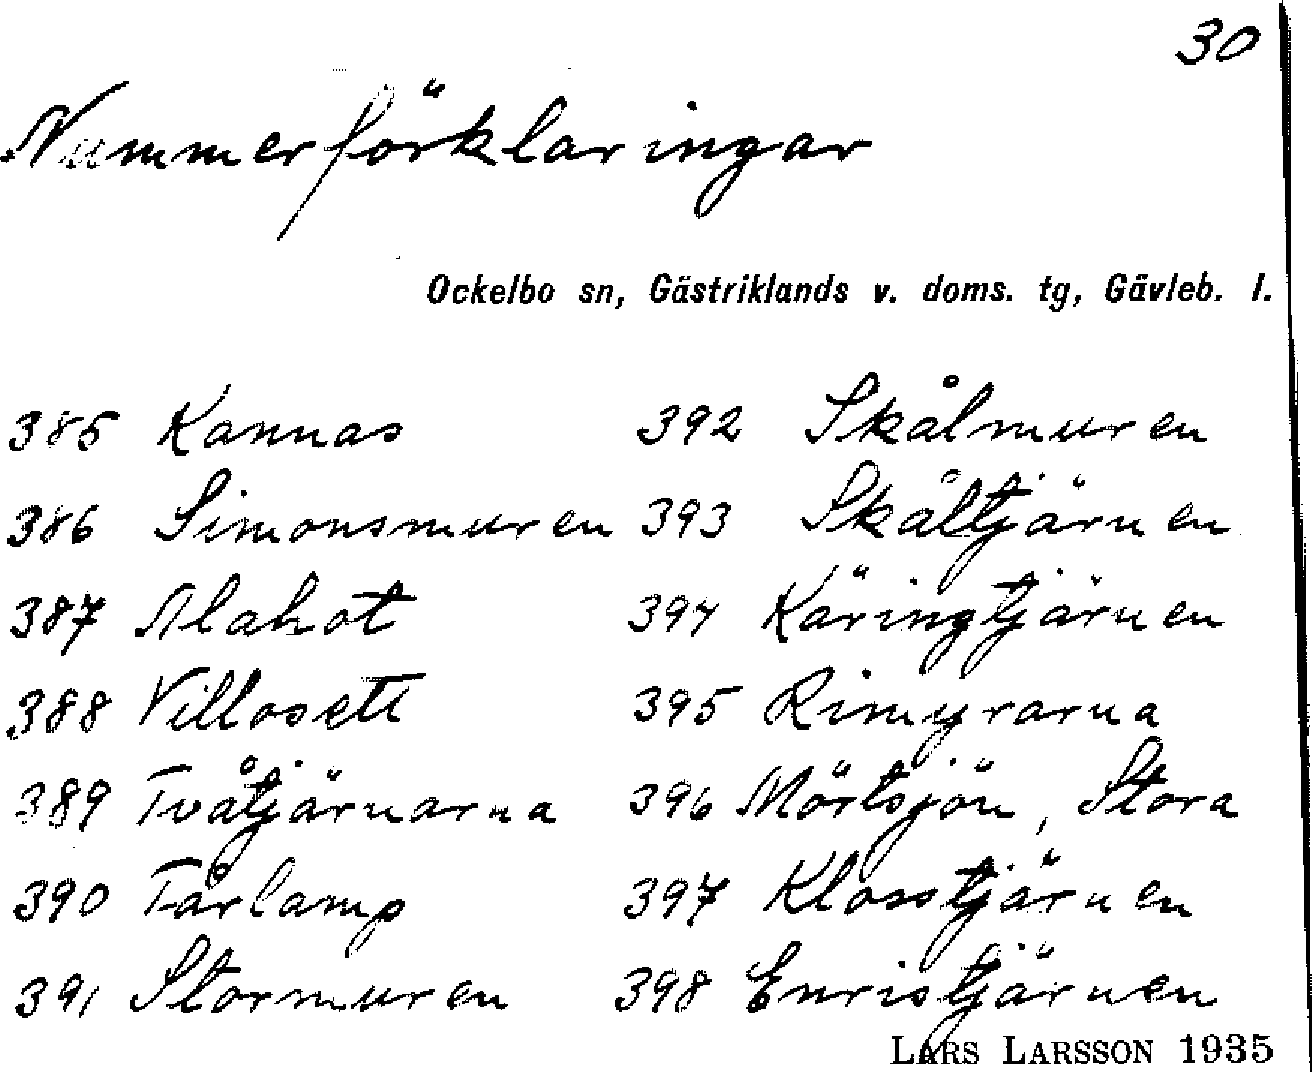 30
Nummerförklaringar
Ockelbo sn, Gästriklands v. doms. tg, Gävleb. l.
385 Kannas 392 Skålmuren
386 Simonsmuren 393 Skåltjärnen
387 Alahot 394 Käringtjärnen
388 Villosett 395 Rimyrarna
389 Tvåtjärnarna 396 Mörtsjön, Stora
390 Tårlamp 397 Klosstjärnen
391 Stormuren 398 Enristjärnen
LARS LARSSON 1935